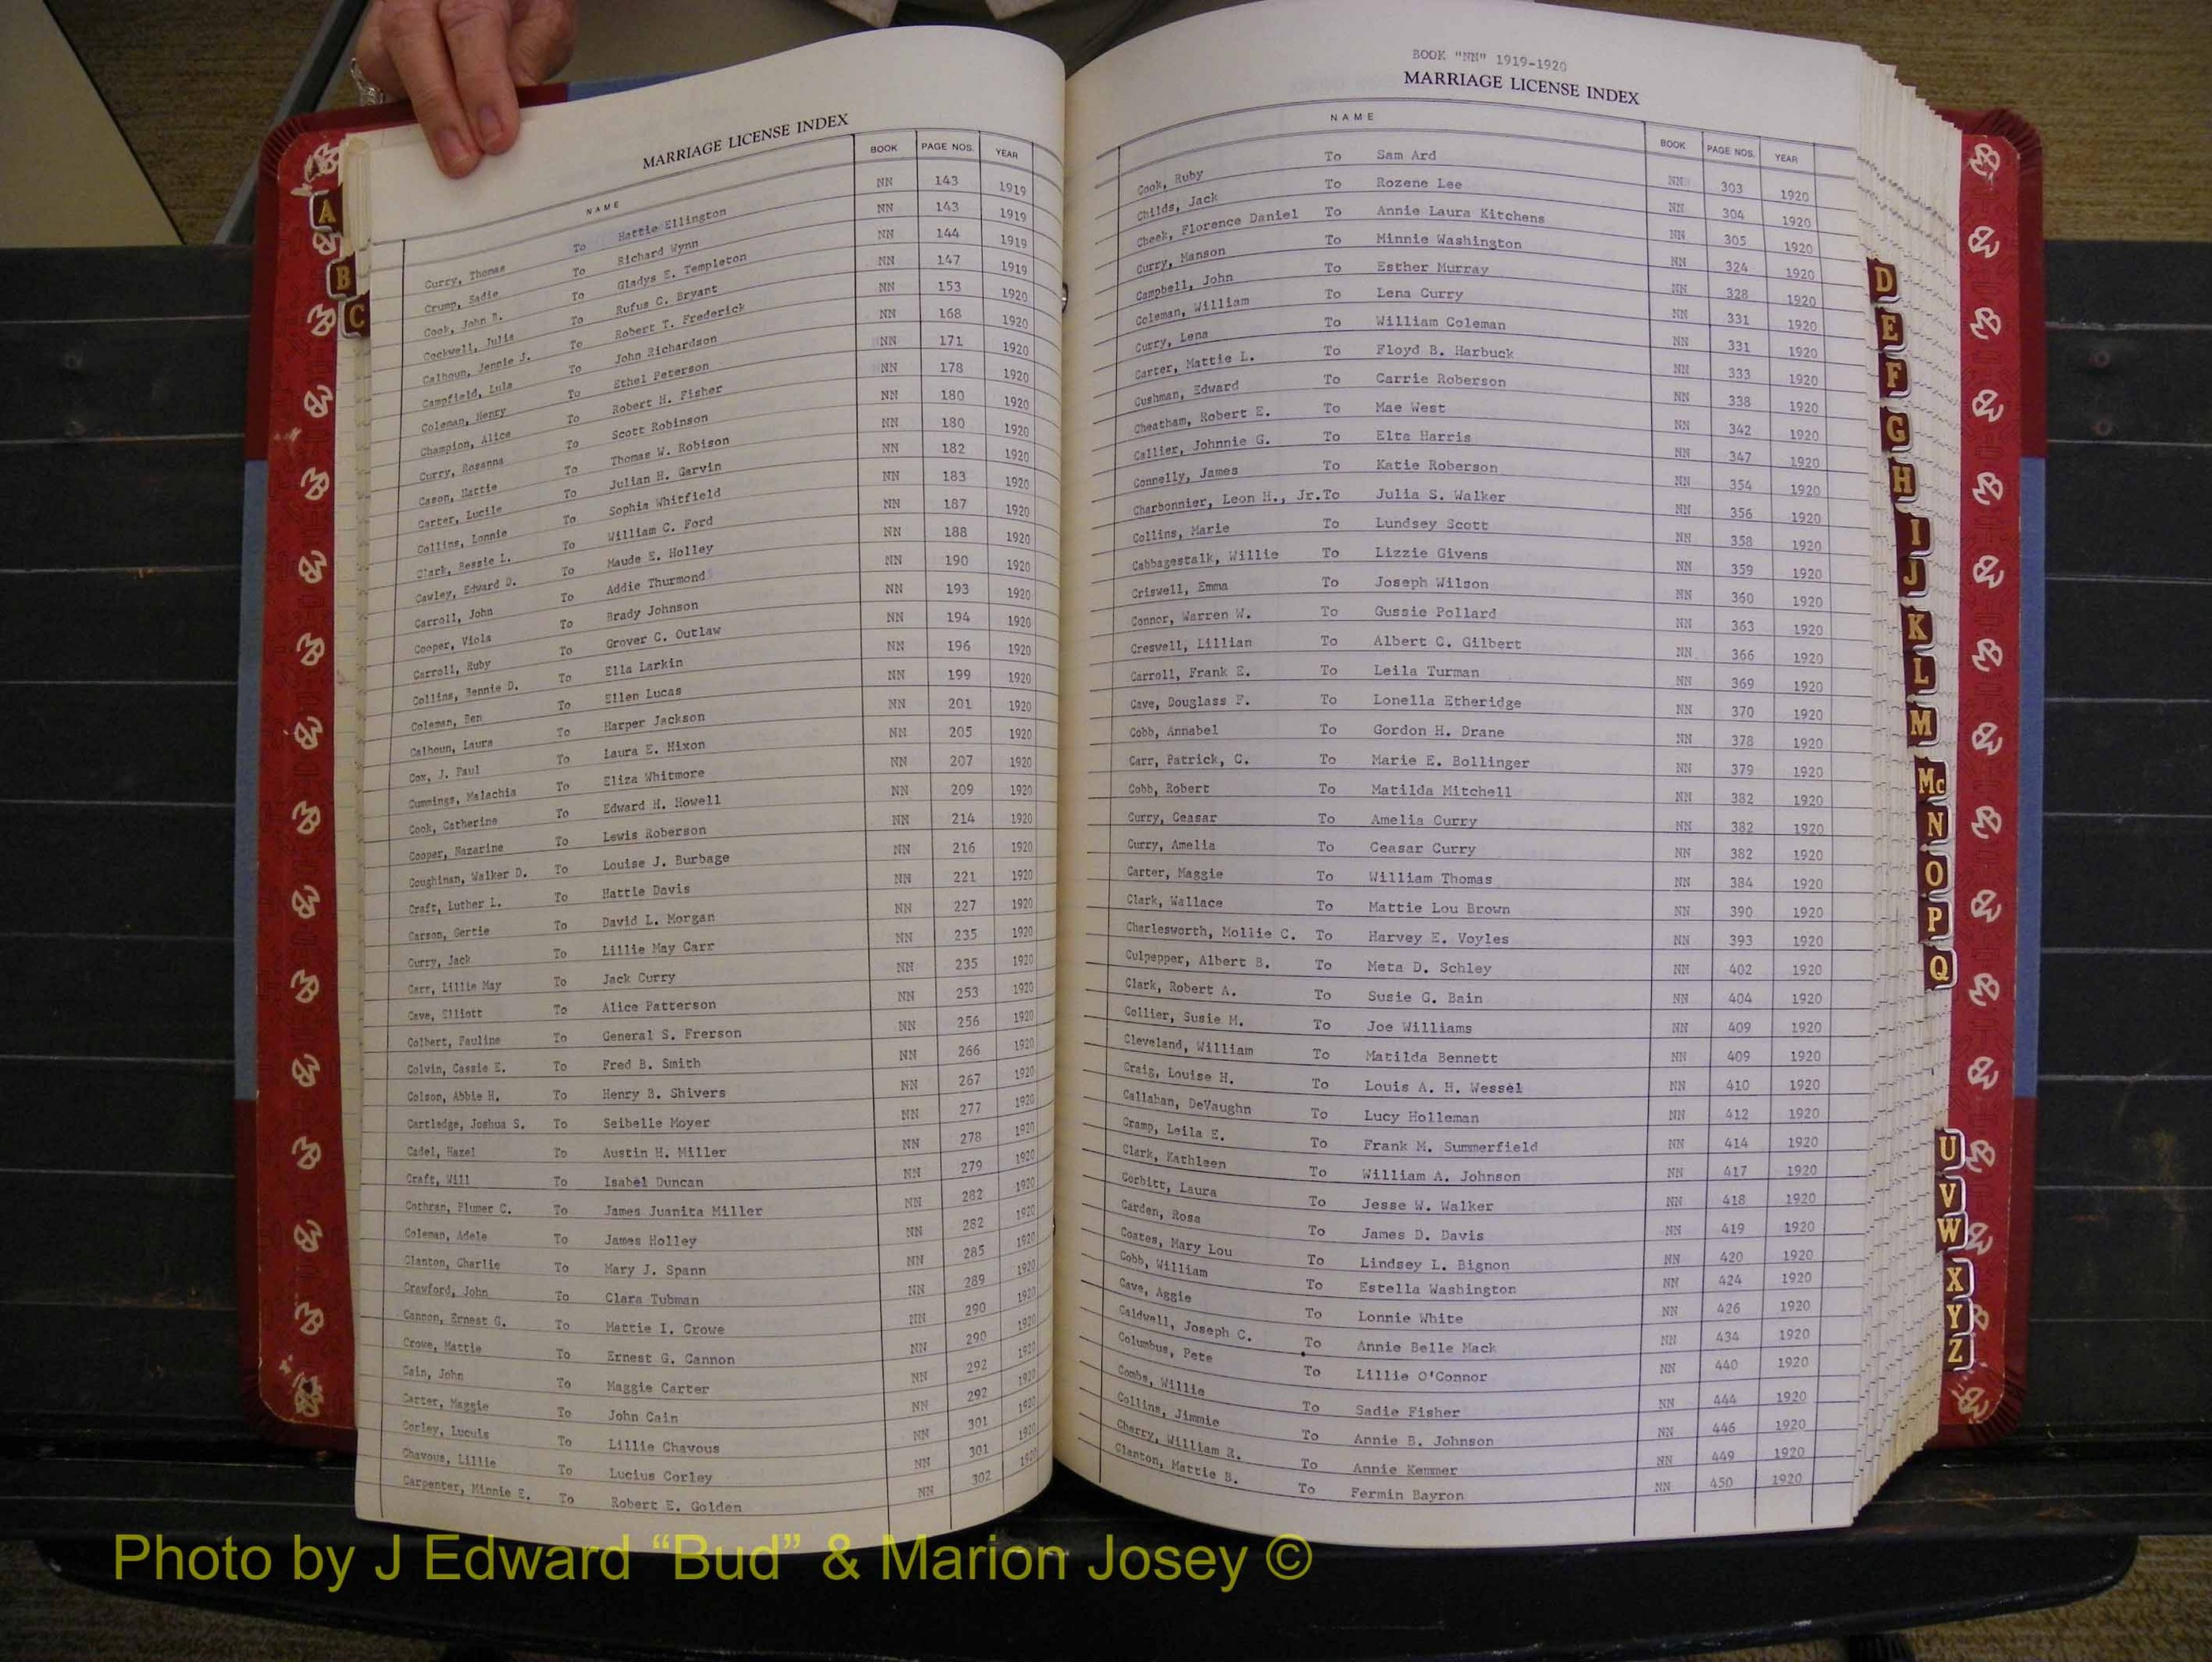 MARRIAGE LICENSE INDEX
NAME BOOK PAGE NOS. YEAR
Curry, Thomas To Hattie Ellington NN 143 1919
Crump, Sadie To Richard Wynn NN 143 1919
Cook, John B. To Gladys E. Templeton NN 144 1919
Cockwell, Julia To Rufus C. Bryant NN 147 1919
Calhoun, Jennie J. To Robert T. Frederick NN 153 1920
Campfield, Lula To John Richardson NN 168 1920
Coleman, Henry To Ethel Peterson NN 171 1920
Champion, Alice To Robert H. Fisher NN 178 1920
Curry, Rosanna To Scott Robinson NN 180 1920
Cason, Hattie To Thomas W. Robison NN 180 1920
Carter, Lucile To Julian H. Garvin NN 182 1920
Collins, Lonnie To Sophia Whitfield NN 183 1920
Clark, Bessie L. To William C. Ford NN 187 1920
Cawley, Edward D. To Maude E. Holley NN 188 1920
Carroll, John To Addie Thurmond NN 190 1920
Cooper, Viola To Brady Johnson NN 193 1920
Carroll, Ruby To Grover C. Outlaw NN 194 1920
Collins, Bennie D. To Ella Larkin NN 196 1920
Coleman, Ben To Ellen Lucas NN 199 1920
Calhoun, Laura To Harper Jackson NN 201 1920
Cox, J. Paul To Laura E. Hixon NN 205 1920
Cummings, Malachia To Eliza Whitmore NN 207 1920
Cook, Catherine To Edward H. Howell NN 209 1920
Cooper, Nazarine To Lewis Roberson NN 214 1920
Coughinan, Walker D. To Louise J. Burbage NN 216 1920
Craft, Luther L. To Hattie Davis NN 221 1920
Carson, Gertie To David L. Morgan NN 227 1920
Curry, Jack To Lillie May Carr NN 235 1920
Carr, Lillie May To Jack Curry NN 235 1920
Cave, Elliott To Alice Patterson NN 253 1920
Colbert, Pauline To General S. Frerson NN 256 1920
Colvin, Cassie E. To Fred B. Smith NN 266 1920
Colson, Abbie H. To Henry B. Shivers NN 267 1920
Cartledge, Joshua S. To Seibelle Moyer NN 277 1920
Cadel, Hazel To Austin H. Miller NN 278 1920
Craft, Will To Isabel Duncan NN 279 1920
Cothran, Plumer C. To James Juanita Miller NN 282 1920
Coleman, Adele To James Holley NN 282 1920
Clanton, Charlie To Mary J. Spann NN 285 1920
Crawford, John To Clara Tubman NN 289 1920
Cannon, Ernest G. To Mattie I. Crowe NN 290 1920
Crowe, Mattie To Ernest G. Cannon NN 290 1920
Cain, John To Maggie Carter NN 292 1920
Carter, Maggie To John Cain NN 292 1920
Corley, Lucuis To Lillie Chavous NN 301 1920
Chavous, Lillie To Lucius Corley NN 301 1920
Carpenter, Minnie E. To Robert E. Golden NN 302 1920
A
B
C
BOOK "NN" 1919-1920
MARRIAGE LICENSE INDEX
NAME BOOK PAGE NOS. YEAR
Cook, Ruby To Sam Ard NN 303 1920
Childs, Jack To Rozene Lee NN 304 1920
Cheek, Florence Daniel To Annie Laura Kitchens NN 305 1920
Curry, Manson To Minnie Washington NN 324 1920
Campbell, John To Esther Murray NN 328 1920
Coleman, William To Lena Curry NN 331 1920
Curry, Lena To William Coleman NN 331 1920
Carter, Mattie L. To Floyd B. Harbuck NN 333 1920
Cushman, Edward To Carrie Roberson NN 338 1920
Cheatham, Robert E. To Mae West NN 342 1920
Callier, Johnnie G. To Elta Harris NN 347 1920
Connelly, James To Katie Roberson NN 354 1920
Charbonnier, Leon H., Jr.To Julia S. Walker NN 356 1920
Collins, Marie To Lundsey Scott NN 358 1920
Cabbagestalk, Willie To Lizzie Givens NN 359 1920
Criswell, Emma To Joseph Wilson NN 360 1920
Connor, Warren W. To Gussie Pollard NN 363 1920
Creswell, Lillian To Albert C. Gilbert NN 366 1920
Carroll, Frank E. To Leila Turman NN 369 1920
Cave, Douglass F. To Lonella Etheridge NN 370 1920
Cobb, Annabel To Gordon H. Drane NN 378 1920
Carr, Patrick, C. To Marie E. Bollinger NN 379 1920
Cobb, Robert To Matilda Mitchell NN 382 1920
Curry, Ceasar To Amelia Curry NN 382 1920
Curry, Amelia To Ceasar Curry NN 382 1920
Carter, Maggie To William Thomas NN 384 1920
Clark, Wallace To Mattie Lou Brown NN 390 1920
Charlesworth, Mollie C. To Harvey E. Voyles NN 393 1920
Culpepper, Albert B. To Meta D. Schley NN 402 1920
Clark, Robert A. To Susie G. Bain NN 404 1920
Collier, Susie M. To Joe Williams NN 409 1920
Cleveland, William To Matilda Bennett NN 409 1920
Craig, Louise H. To Louis A. H. Wessel NN 410 1920
Callahan, DeVaughn To Lucy Holleman NN 412 1920
Cramp, Leila E. To Frank M. Summerfield NN 414 1920
Clark, Kathleen To William A. Johnson NN 417 1920
Corbitt, Laura To Jesse W. Walker NN 418 1920
Carden, Rosa To James D. Davis NN 419 1920
Coates, Mary Lou To Lindsey L. Bignon NN 420 1920
Cobb, William To Estella Washington NN 424 1920
Cave, Aggie To Lonnie White NN 426 1920
Caldwell, Joseph C. To Annie Belle Mack NN 434 1920
Columbus, Pete To Lillie O'Connor NN 440 1920
Combs, Willie To Sadie Fisher NN 444 1920
Collins, Jimmie To Annie B. Johnson NN 446 1920
Cherry, William R. To Annie Kemmer NN 449 1920
Clanton, Mattie B. To Fermin Bayron NN 450 1920
D
E
F
G
H
I
J
K
L
M
Mc
N
O
P
Q
U
V
W
X
Y
Z
Photo by J Edward “Bud” & Marion Josey ©